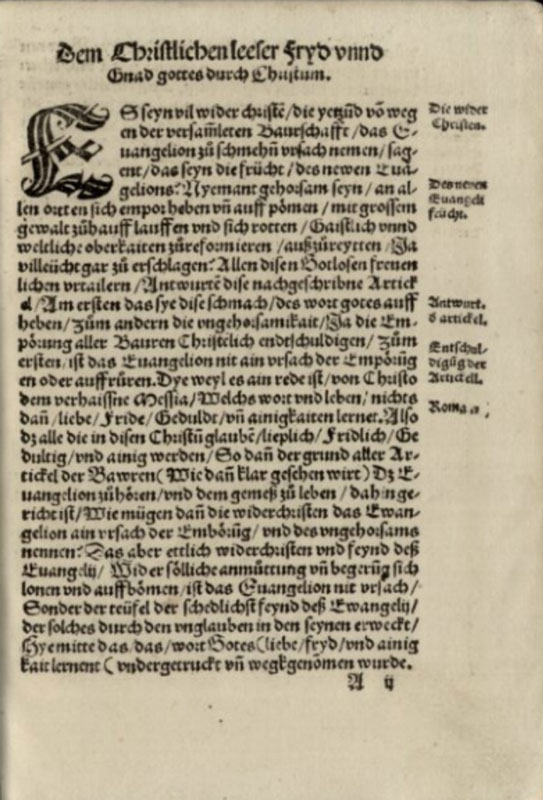 Dem Christlichen leeser Fryd vnnd
Gnad gottes durch Christum.
ES seyn vil wider christē/die yetzūd vō weg
en der versam̄leten Baurschafft/das E-
uangelion zů schmehñ vrsach nemen/sag-
ent/das seyn die frücht/des newen Eua-
gelions? Nyemant gehorsam seyn/an al-
len ortten sich empor heben vñ auff pömen/mit grossem
gewalt zůhauff lauffen vnd sich rotten/Gaistlich vnnd
weltliche oberkaiten zůreformieren/außzůreytten/Ja
villeücht gar zů erschlagen? Allen disen Gotlosen freuen
lichen vrtailern/Antwurtē dise nachgeschribne Artick
el/Am ersten das sye dise schmach/des wort gotes auff
heben/zům andern die vngehorsamikait/Ja die Em-
pörung aller Bauren Christelich endtschuldigen/zům
ersten/ist das Euangelion nit ain vrsach der Empörūg
en oder auffrüren. Dye weyl es ain rede ist/von Christo
dem verhaissne Messia/Welchs wort vnd leben/nichts
dañ/liebe/Fride/Geduldt/vñ ainigkaiten lernet. Also
dz alle die in disen Christū glaubē/lieplich/Fridlich/Ge
dultig/vnd ainig werden/So dañ der grund aller Ar-
tickel der Bawren (Wie dañ klar gesehen wirt) Dz E-
uangelion zů hören/vnd dem gemeß zů leben/dahin ge-
richt ist/Wie mügen dañ die widerchristen das Ewan-
gelion ain vrsach der Embörūg/vnd des vngehorsams
nennen? Das aber ettlich widerchristen vnd feynd deß
Euangelij/Wider sölliche anmůttung vñ begerūg sich
lonen vnd auffbömen/ist das Euangelion nit vrsach/
Sonder der teüfel der schedlichst feynd deß Ewangelij/
der solches durch den vnglauben in den seynen erweckt/
Hye mitte das/das/wort Gotes (liebe/fryd/vnd ainig
kait lernent (vndergetruckt vñ wegkgenōmen wurde.
A ij
Die wider
Christen.
Des newen
Euangeli
frücht.
Antwurt.
d artickel.
Entschul-
digūg der
Artickell.
Roma